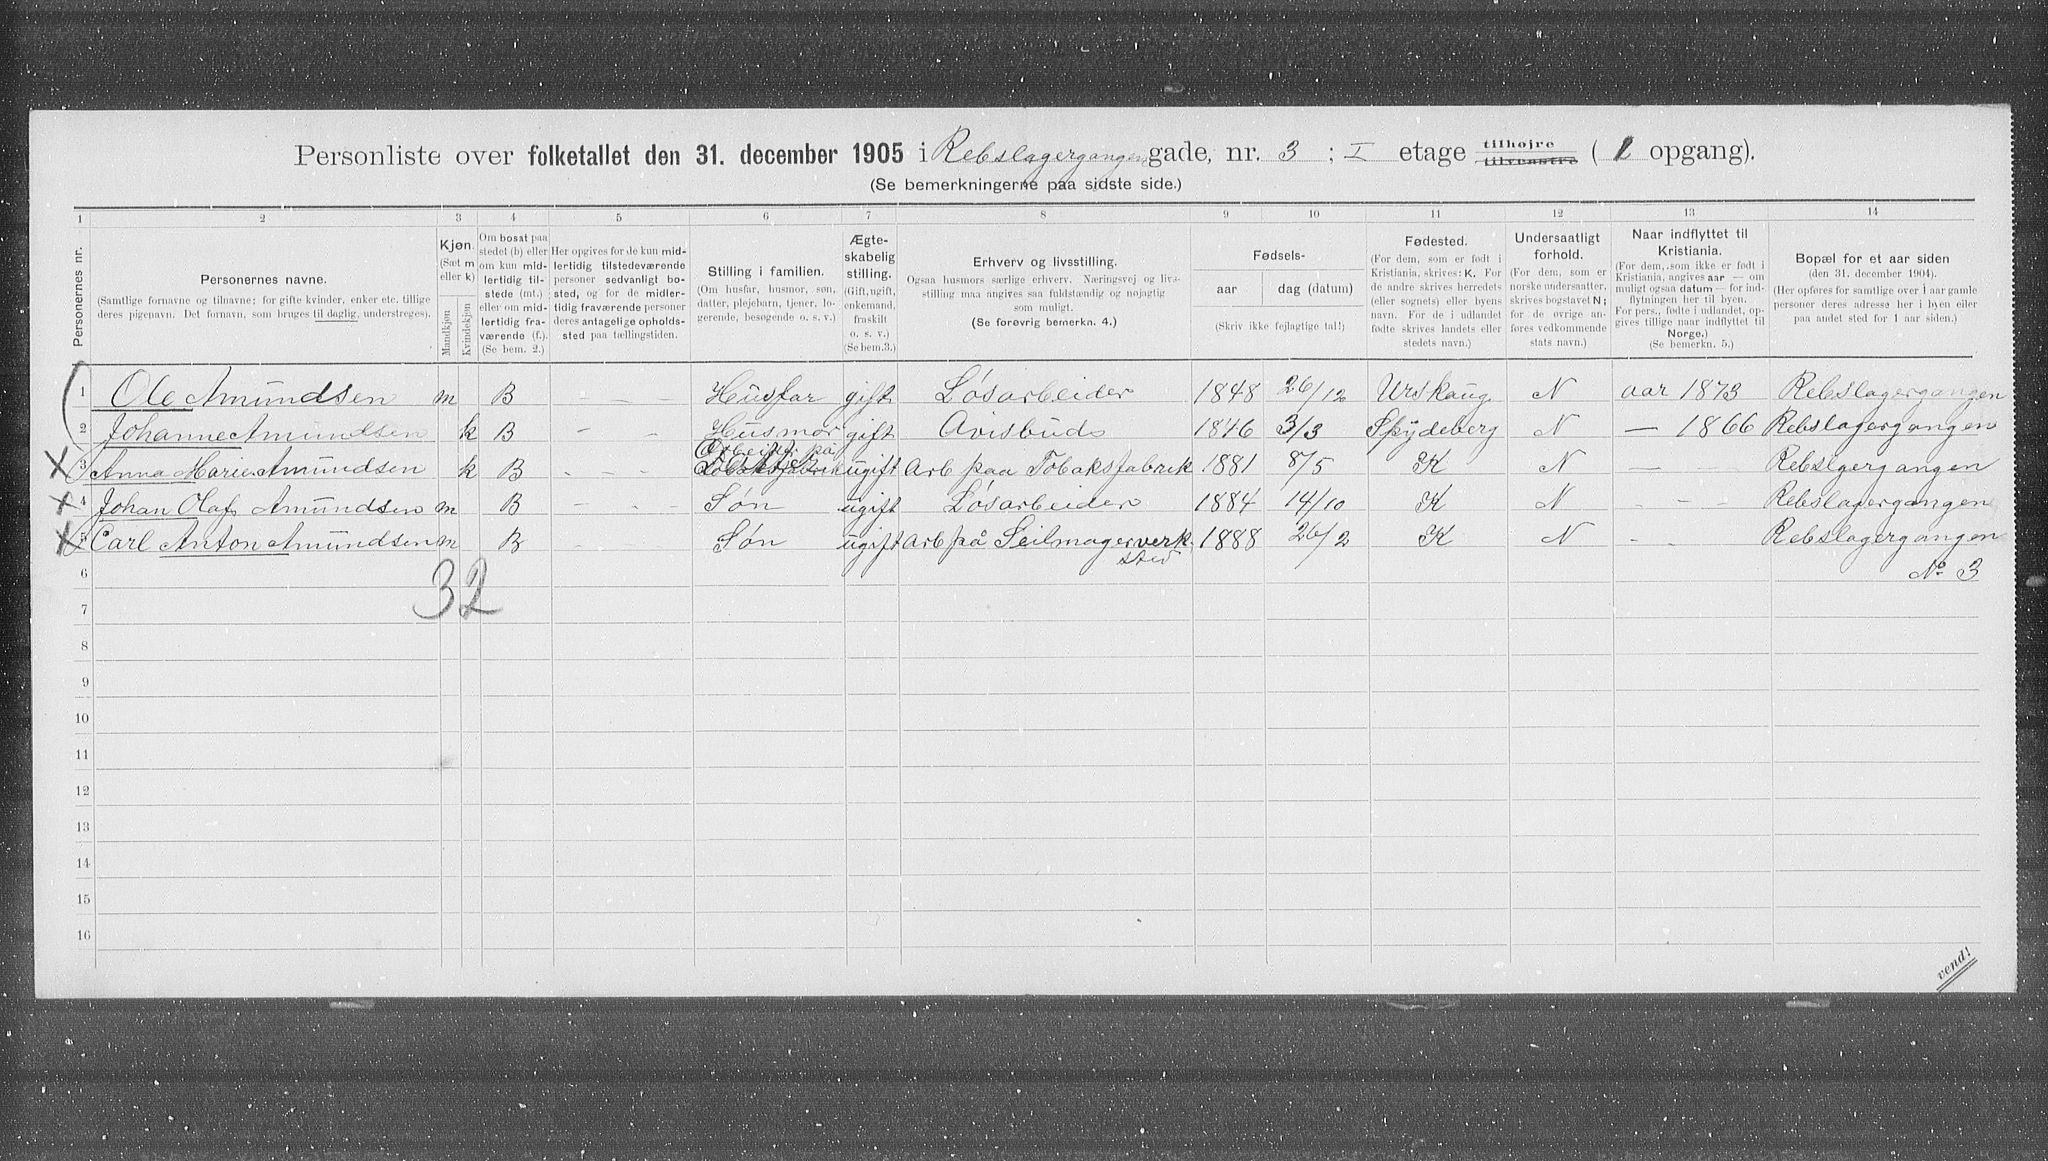 Personliste over folketallet den 31. december 1905 i Rebslagergangen gade, nr. 3 ; I etage tilhøjre tilvenstre ( 1 opgang).
(Se bemerkningerne paa sidste side.)
1 2 3 4 5 6 7 8 9 10 11 12 13 14
Personernes nr.
Personernes navne.
(Samtlige fornavne og tilnavne; for gifte kvinder, enker etc. tillige
deres pigenavn. Det fornavn, som bruges til daglig, understreges).
Kjøn.
(Sæt m
eller k)
Mandkjøn
Kvindekjøn
Om bosat paa
stedet (b) eller
om kun mid-
lertidig til-
stede (mt.)
eller om mid-
lertidig fra-
værende (f.).
(Se bem. 2.)
Her opgives for de kun mid-
lertidig tilstedeværende
personer sedvanlig bo-
sted, og for de midler-
tidig fraværende personer
deres antagelige opholds-
sted paa tællingstiden.
Stilling i familien.
(Om husfar, husmor, søn,
datter, plejebarn, tjener, lo-
gerende, besøgende o. s. v.)
Ægte-
skabelig
stilling.
(Gift, ugift,
enkemand,
fraskilt
o. s. v.)
(Se bem.3.)
Erhverv og livsstilling.
Ogsaa husmors særlige erhverv. Næringsvej og livs-
stilling maa angives saa fuldstændig og nøjagtig
som muligt.
(Se forøvrig bemerkn. 4.)
Fødsels-
aar
dag (datum)
(Skriv ikke fejlagtige tal!)
Fødested.
(For dem, som er født i
Kristiania, skrives: K. For
de andre skrives herredets
(eller sognets) eller byens
navn. For de i udlandet
fødte skrives landets eller
stedets navn.)
Undersaatligt
forhold.
(For dem, som er
norske undersaatter,
skrives bogstavet N;
for de øvrige an-
føres vedkommende
stats navn.)
Naar indflyttet til
Kristiania.
(For dem, som ikke er født i
Kristiania, angives aar — om
muligt ogsaa datum — for ind-
flytningen her til byen.
For pers., fødte i udlandet, op-
gives tillige naar indflyttet til
Norge.)
(Se bemerkn. 5.)
Bopæl for et aar siden
(den 31. december 1904).
(Her opføres for samtlige over 1 aar gamle
personer deres adresse her i byen eller
paa andet sted for 1 aar siden.)
1 Ole Amundsen m B - - - Husfar gift Løsarbeider 1848 26/12 Urskaug N aar 1873 Rebslagergangen
2 Johanne Amundsen k B - - Husmor gift Avisbud 1846 3/3 Spydeberg N — 1866 Rebslagergangen
Arbeider på
3 Anna Marie Amundsen k B - - - ugift Arb paa Tobaksfabrik 1881 8/5 K N - - Rebslgergangen
4 Johan Olaf Amundsen m B - - - Søn ugift Løsarbeider 1884 14/10 K N - - Rebslagergangen
5 Carl Anton Amundsen m B - - Søn ugift Arb på Seilmagerverk 1888 26/2 K N - - Rebslagergangen
sted
6 No 3
32
7
8
9
10
11
12
13
14
15
16
vend!